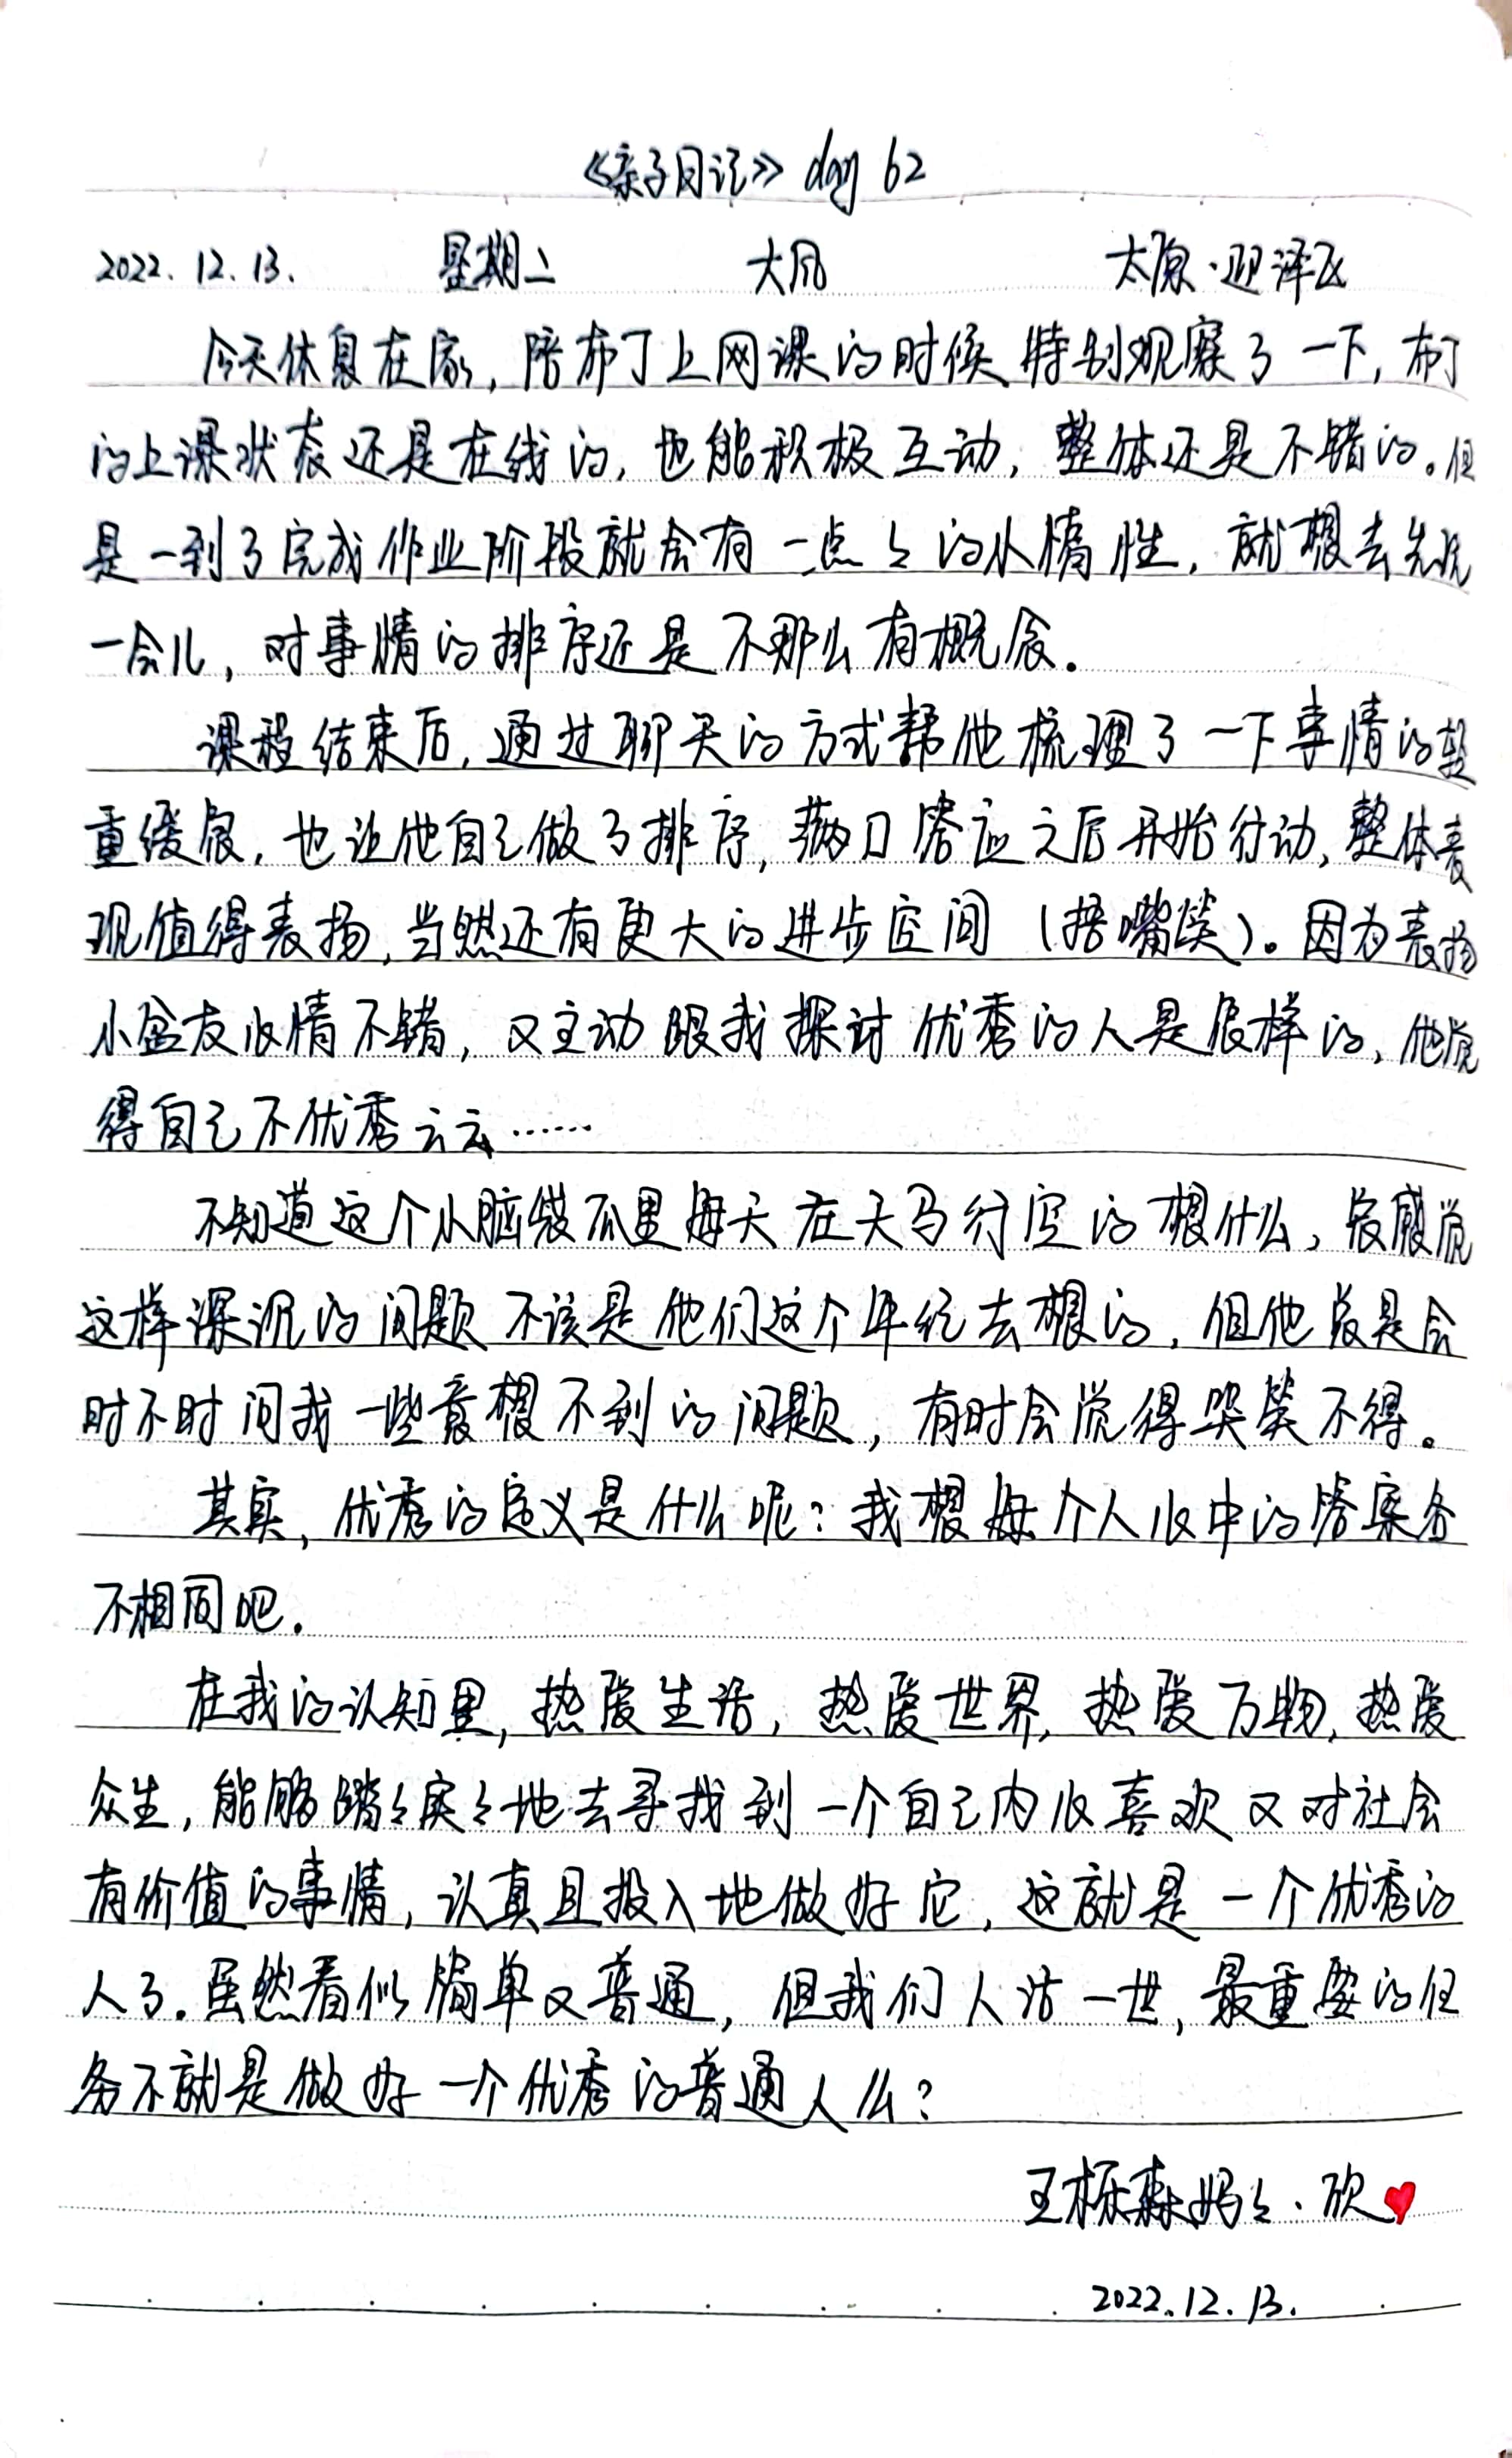 《亲子日记》 day 62
2022.12.13. 星期二 大风 太原·迎泽区
今天休息在家，陪布丁上网课的时候，特别观察了一下，布丁
的上课状态还是在线的，也能积极互动，整体还是不错的。但
是一到了完成作业阶段就会有一点々的小惰性，就想去先玩
一会儿，对事情的排序还是不那么有概念。
课程结束后，通过聊天的方式帮他梳理了一下事情的轻
重缓急，也让他自己做了排序，满口答应之后开始行动，整体表
现值得表扬，当然还有更大的进步空间（捂嘴笑）。因为表扬
小盆友心情不错，又主动跟我探讨优秀的人是怎样的，他觉
得自己不优秀云云……
不知道这个小脑袋瓜里每天在天马行空的想什么，总感觉
这样深沉的问题不该是他们这个年纪去想的，但他总是会
时不时问我一些意想不到的问题，有时会觉得哭笑不得。
其实，优秀的定义是什么呢？我想每个人心中的答案各
不相同吧。
在我的认知里，热爱生活，热爱世界，热爱万物，热爱
众生，能够踏々实々地去寻找到一个自己内心喜欢又对社会
有价值的事情，认真且投入地做好它，这就是一个优秀的
人了。虽然看似简单又普通，但我们人活一世，最重要的任
务不就是做好一个优秀的普通人么？
王栎森妈々·欣
2022.12.13.